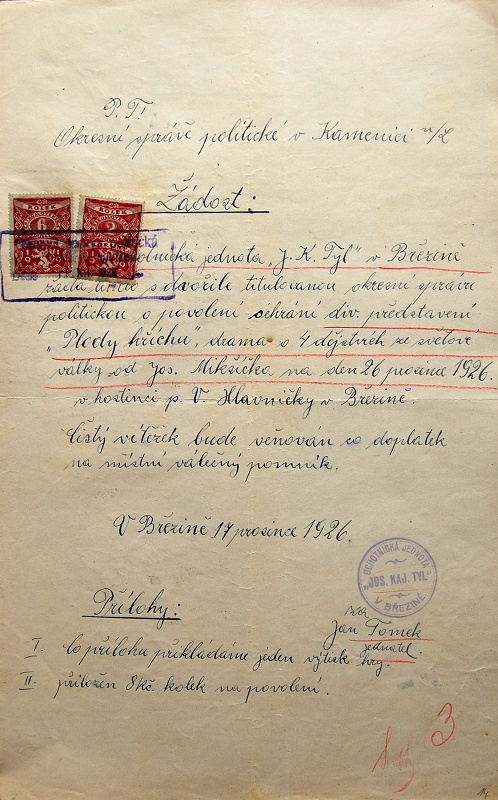 P. T.!
Okresní správě politické v Kamenici n/L
Žádost:
Ochotnická jednota „J. K. Tyl" v Březině
žádá tímto zdvořile titulovanou okresní správu
politickou o povolení sehrání div. představení
„Plody hříchu", drama o 4 dějstvéh ze světové
války od Jos. Mikšíčka na den 26 prosince 1926.
v hostinci p. V. Hlavničky v Březině.
Čistý výtěžek bude věňován co doplatek
na místní válečný pomník.
V Březině 17 prosince 1926.
OCHOTNICKÁ JEDNOTA
„JOS. KAJ. TYL"
V BŘEZINĚ
za
Jan Tomek
jednatel.
Přílohy:
I. Co přílohu přikládáme jeden výtisk hry.
II přiložen 8 kč. kolek na povolení.
3
14
ČR
KOLEK
6
ČR
KOLEK
2